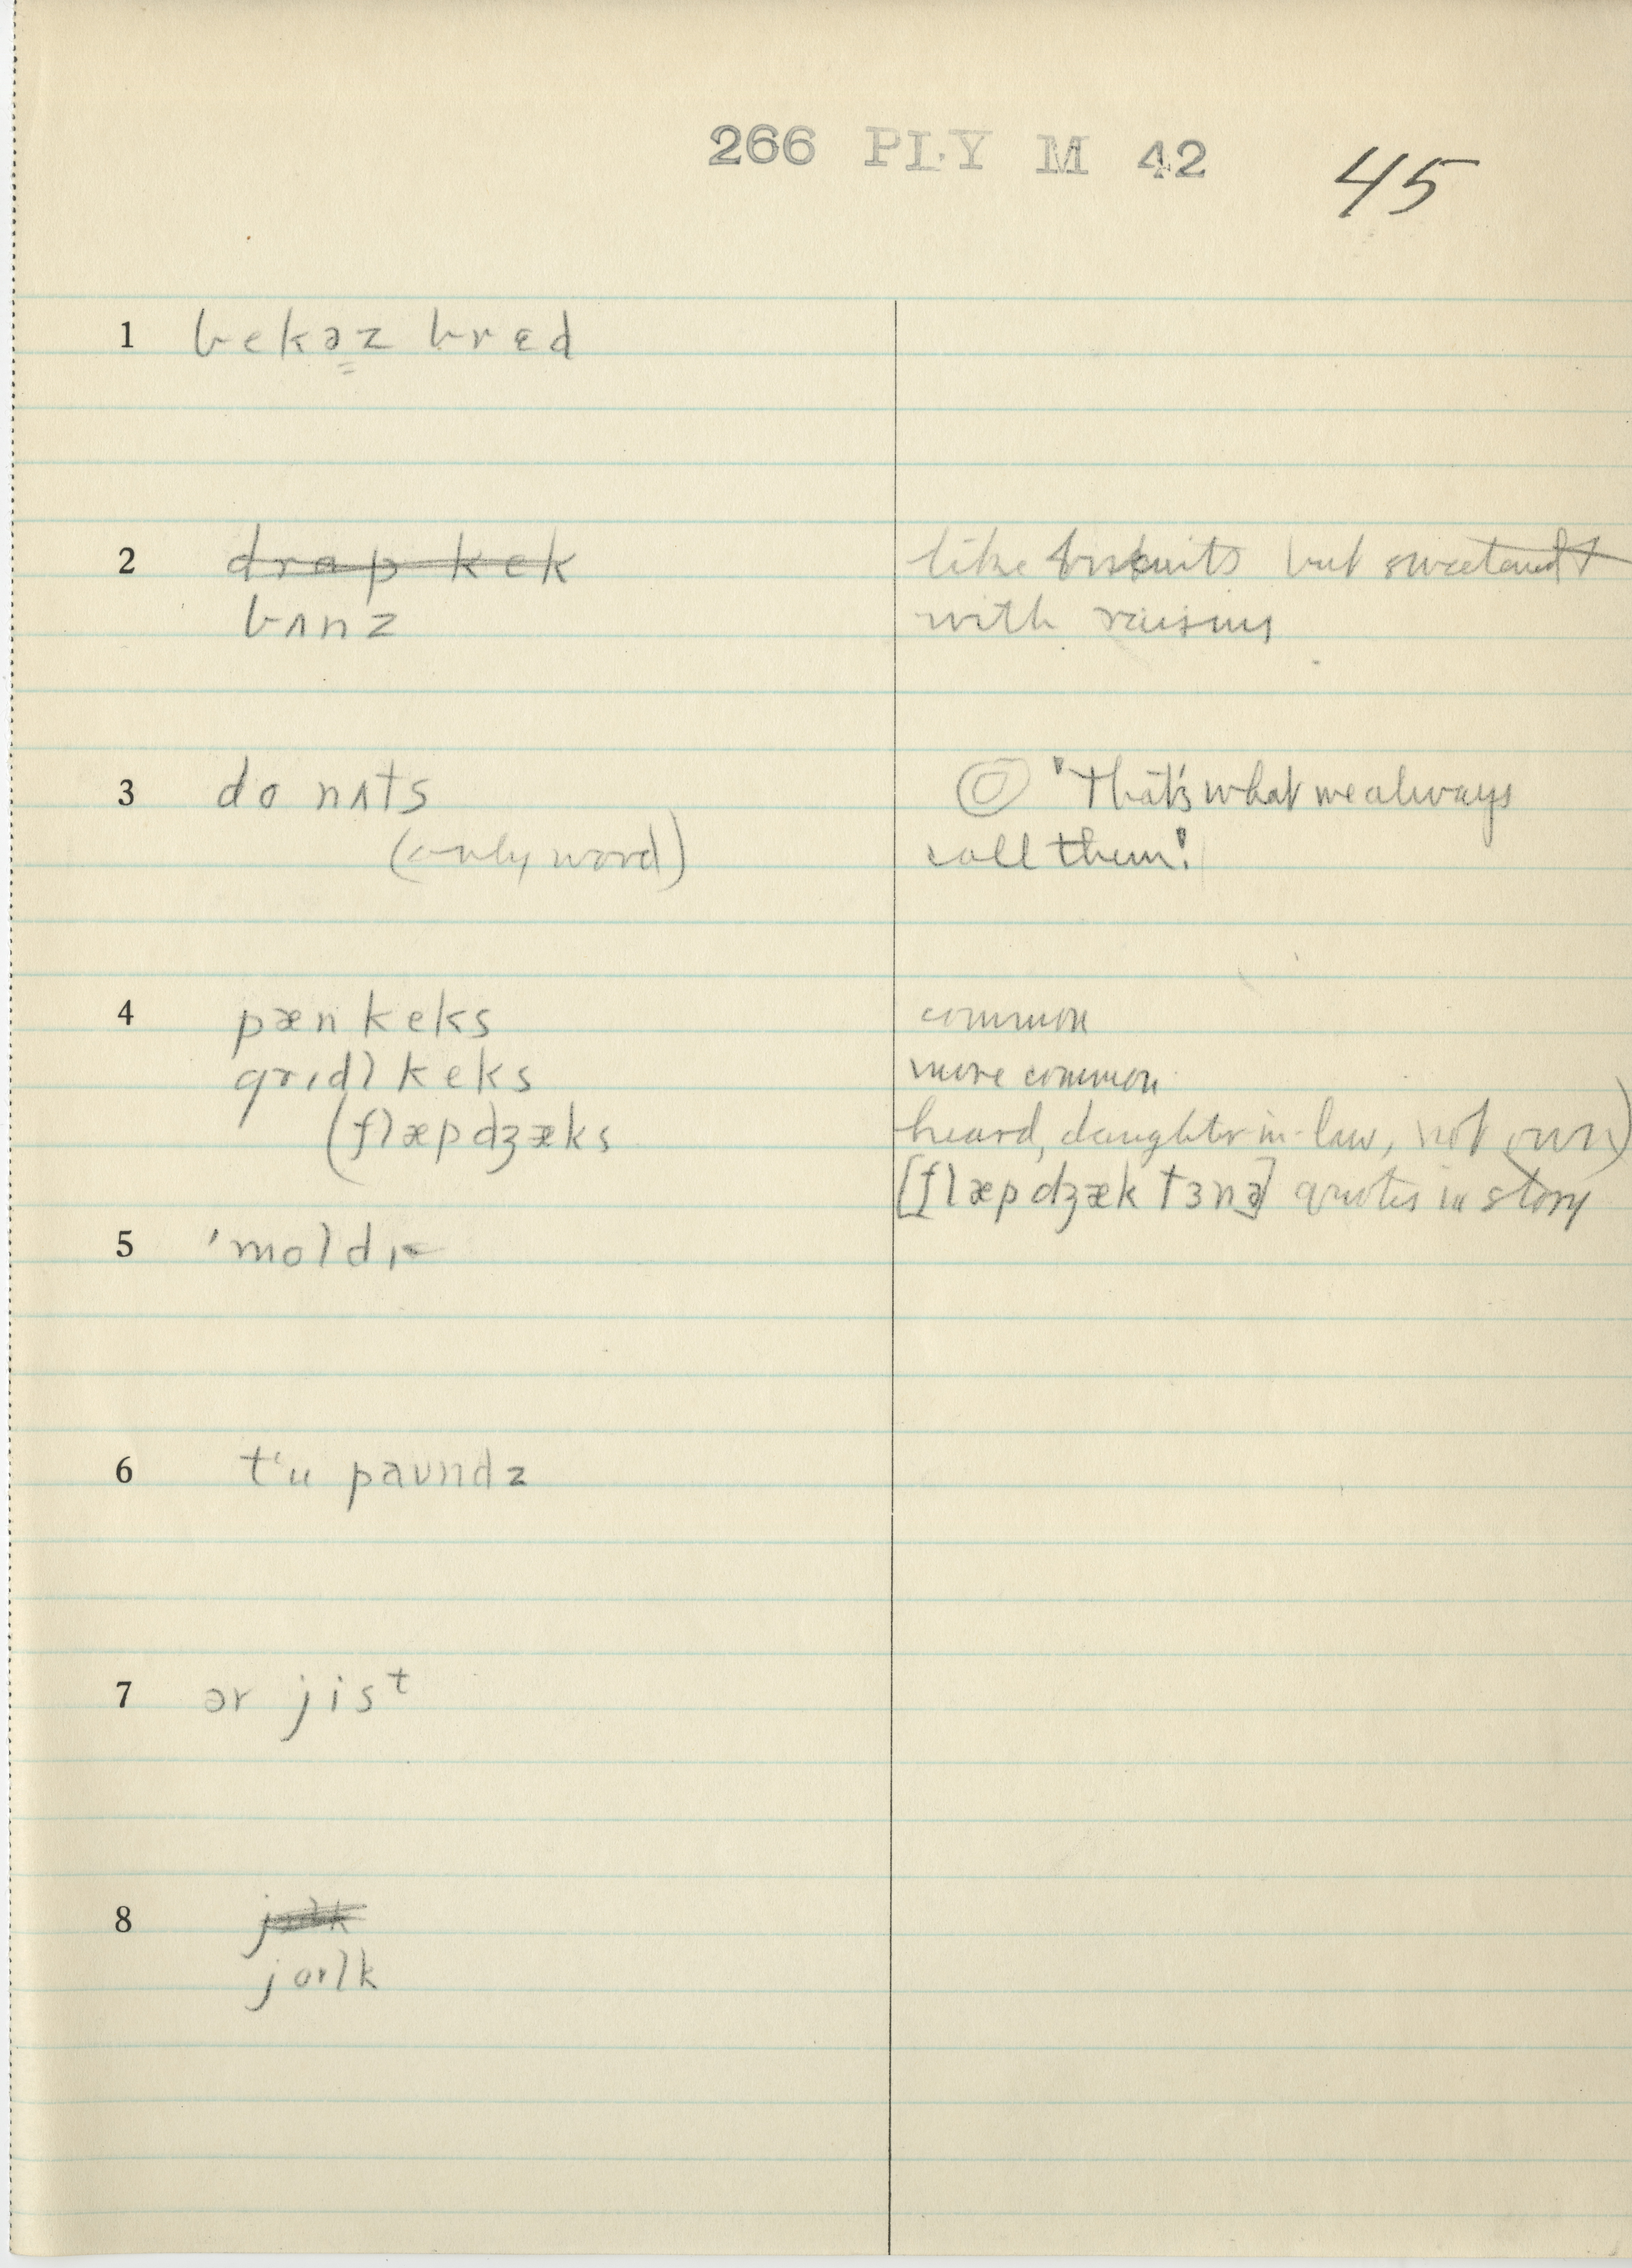 266 PLY M 42 45
1 bekəz brɛd
2 drap kek like biskuits but sweetened
bʌnz with raisins
3 do nʌts ◎ "That's what we always
(only word) call them."
4 pæn keks common
grɪdl keks more common
(flæpdʒæks heard, daughter-in-law, not own)
[flæpdʒæk tɜnə] quotes in story
5 ˈmoldɪ
6 tʻu paʊndz
7 ər jisᵗ
8
jolk